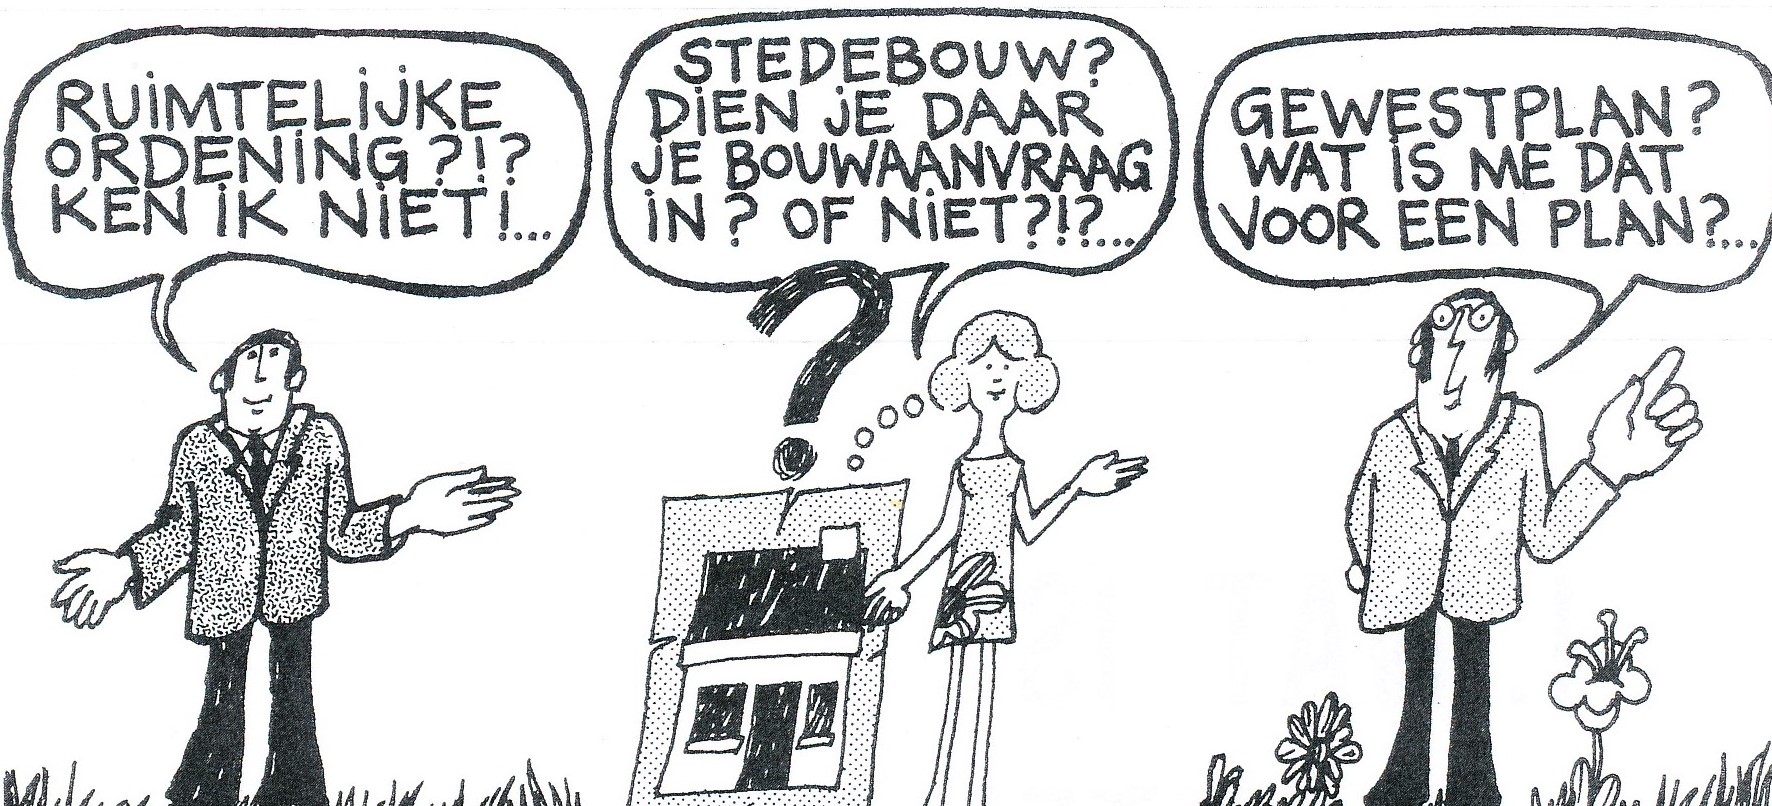 RUIMTELIJKE
ORDENING?!?
KEN IK NIET!...
STEDEBOUW?
DIEN JE DAAR
JE BOUWAANVRAAG
IN? OF NIET?!?....
GEWESTPLAN?
WAT IS ME DAT
VOOR EEN PLAN?...
?